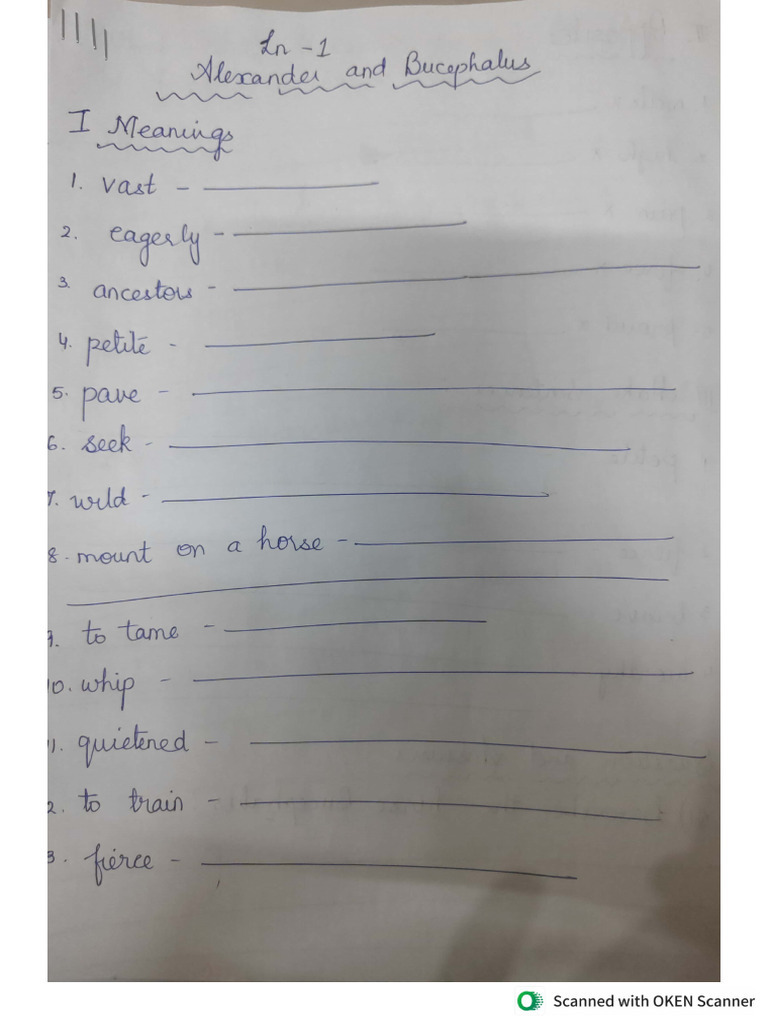 Ln - 1
Alexander and Bucephalus
I Meanings
1. vast -
2. eagerly -
3. ancestors -
4. petite -
5. pave -
6. seek -
7. wild -
8. mount on a horse -
9. to tame -
10. whip -
11. quietened -
2. to train -
3. fierce -
Scanned with OKEN Scanner